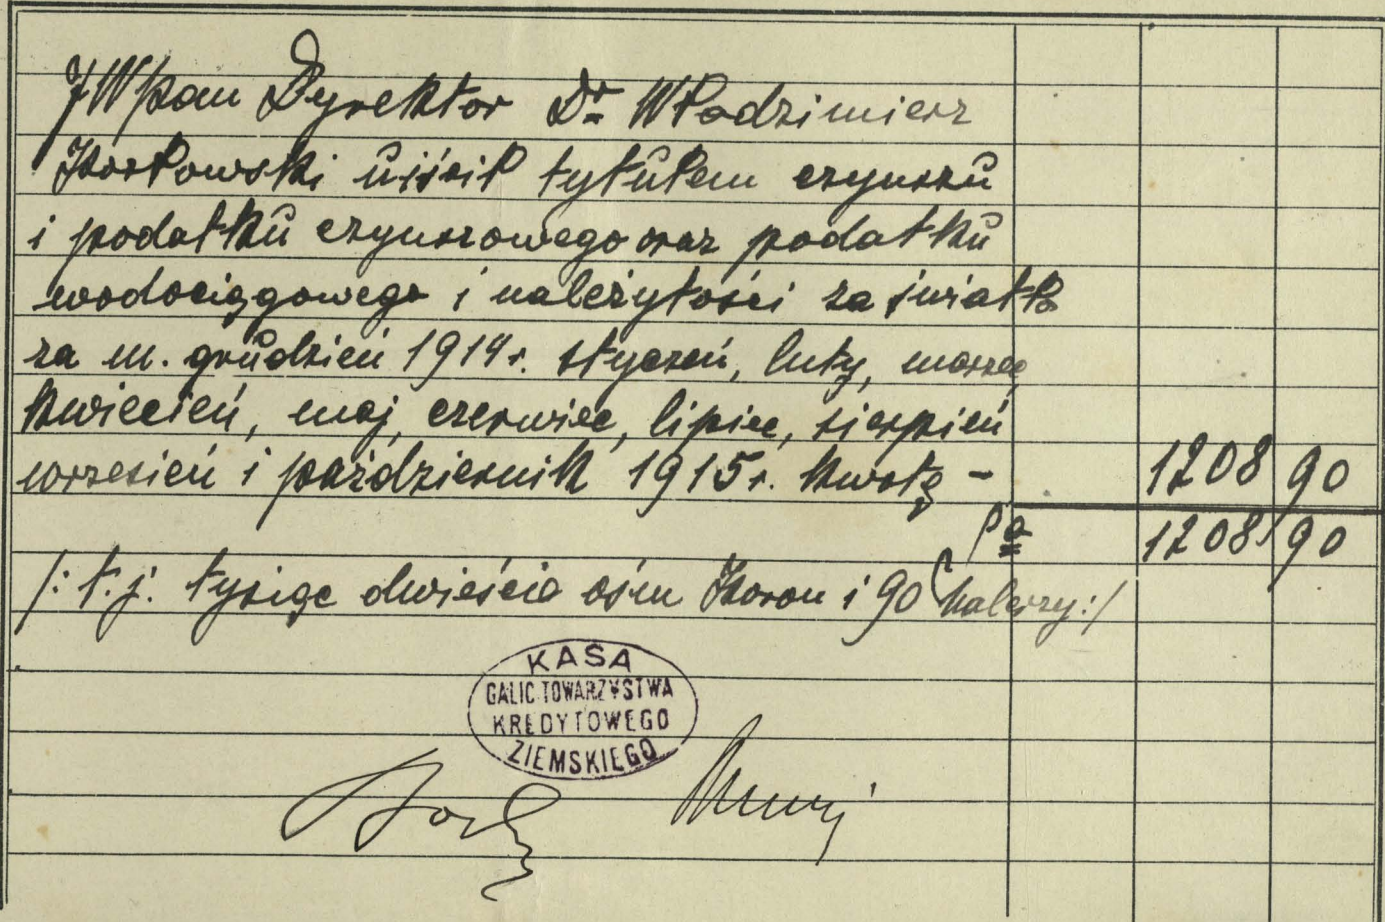 JWPan Dyrektor Dr. Włodzimierz
Kozłowski uiścił tytułem czynszu
i podatku czynszowego oraz podatku
wodociągowego i należytości za światło
za m. grudzień 1914 r. styczeń, luty, marzec,
kwiecień, maj, czerwiec, lipiec, sierpień
wrzesień i październik 1915 r. kwotę – 1208 90
1208 90
/: t. j. tysiąc dwieście ośm Koron i 90 halerzy :/
KASA
GALIC TOWARZYSTWA
KREDYTOWEGO
ZIEMSKIEGO